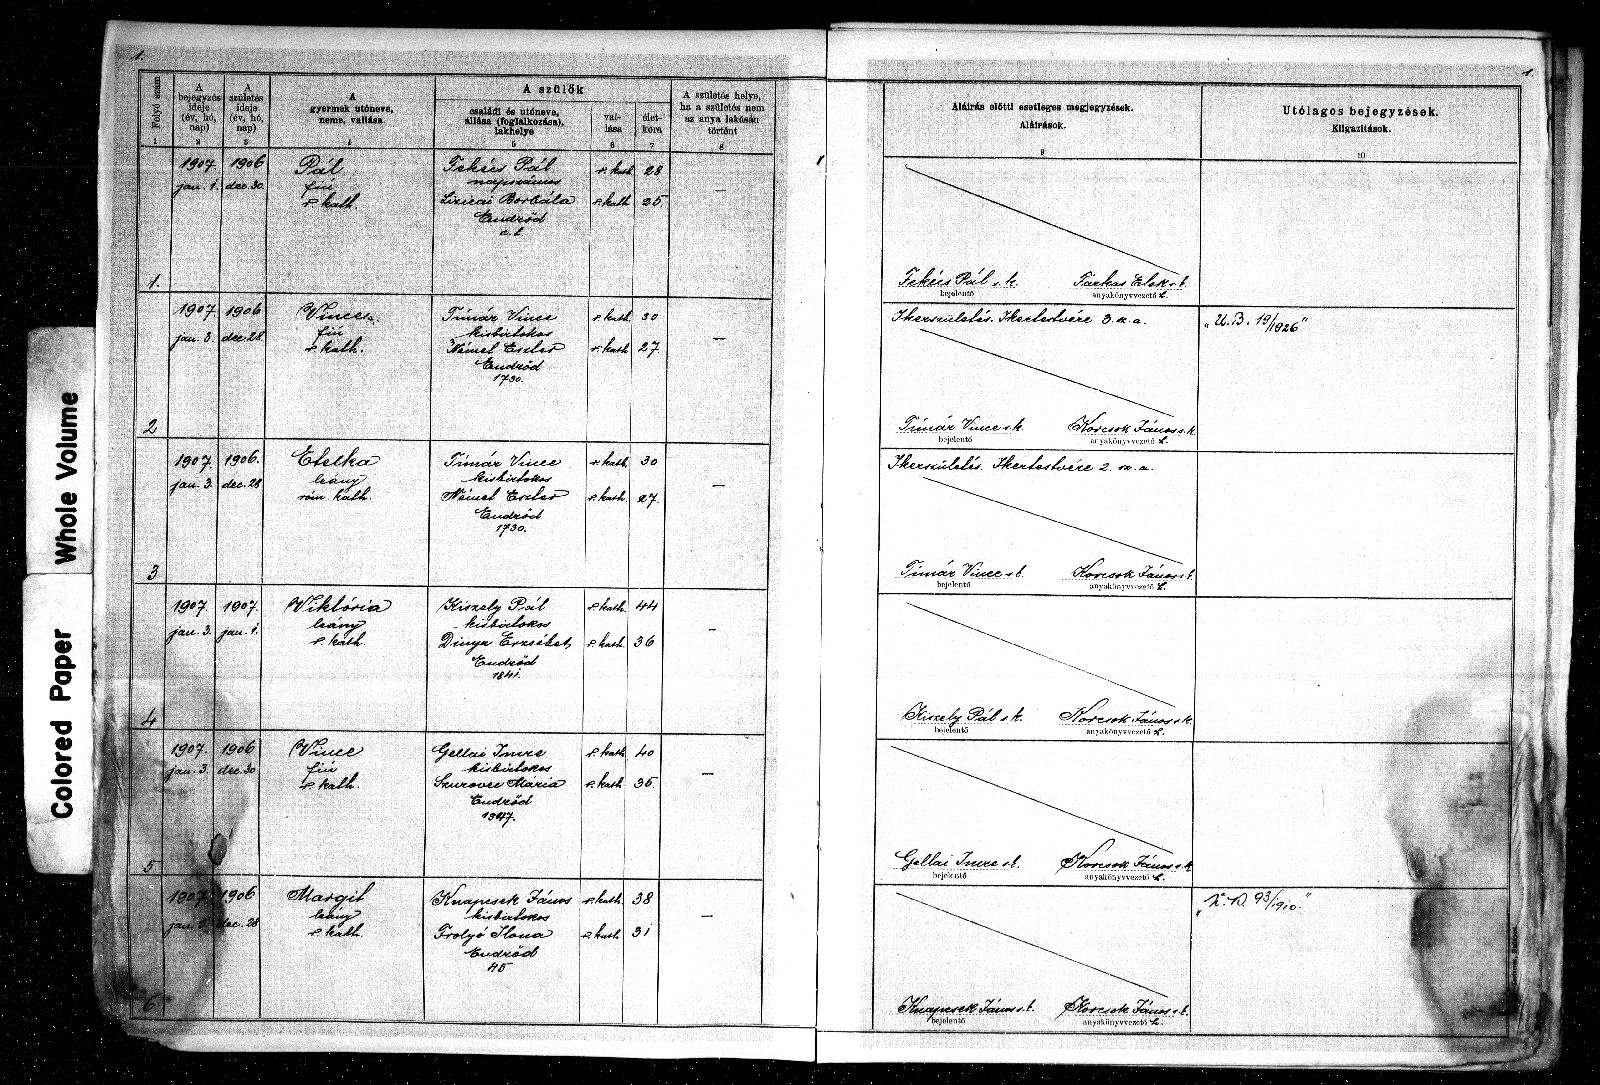 1.
1.
Folyó szám
A bejegyzés ideje (év, hó, nap)
A születés ideje (év, hó, nap)
A gyermek utóneve, neme, vallása
A szülők
családi és utóneve, állása (foglalkozása), lakhelye
vallása
életkora
A születés helye, ha a születés nem az anya lakásán történt
Aláírás előtti esetleges megjegyzések.
Aláírások.
Utólagos bejegyzések.
Kiigazítások.
1 2 3 4 5 6 7 8 9 10
1907. 1906 Pál Fekécs Pál r. kath. 28
jan. 1. dec. 30. fiú napszámos —
r. kath. Linczai Borbála r. kath. 25
Endrőd
Fekécs Pál s. k. Farkas Elek s. k.
bejelentő anyakönyvvezető h.
1.
1907. 1906 Vincze Tímár Vince r. kath. 30 Ikerszületés. Ikertestvére 3. sz. a. „U. B. 19/1926"
jan. 3. dec. 28. fiú kisbirtokos —
r. kath. Német Eszter r. kath. 27
Endrőd
1730.
Tímár Vince s. k. Korcsok János s. k.
bejelentő anyakönyvvezető h.
2
1907. 1906. Etelka Tímár Vince r. kath. 30 Ikerszületés. Ikertestvére 2. sz. a.
jan. 3. dec. 28 leány kisbirtokos —
róm. kath. Német Eszter r. kath. 27.
Endrőd
1730.
Tímár Vince s. k. Korcsok János s. k.
bejelentő anyakönyvvezető h.
3
1907. 1907. Viktória Kiszely Pál r. kath. 44
jan. 3. jan. 1. leány kisbirtokos —
r. kath. Dinya Erzsébet r. kath. 36
Endrőd
1841.
Kiszely Pál s. k. Korcsok János s. k.
bejelentő anyakönyvvezető h.
4
1907. 1906 Vince Gellai Imre r. kath. 40
jan. 3. dec. 30 fiú kisbirtokos —
r. kath. Szurovec Mária r. kath. 35.
Endrőd
1947.
Gellai Imre s. k. Korcsok János s. k.
bejelentő anyakönyvvezető h.
5
1907. 1906 Margit Knapcsek János r. kath. 38
jan. 3. dec. 28 leány kisbirtokos —
r. kath. Frolyó Ilona r. kath. 31
Endrőd
Knapcsek János s. k. Korcsok János s. k.
bejelentő anyakönyvvezető h.
6
Whole Volume
Colored Paper